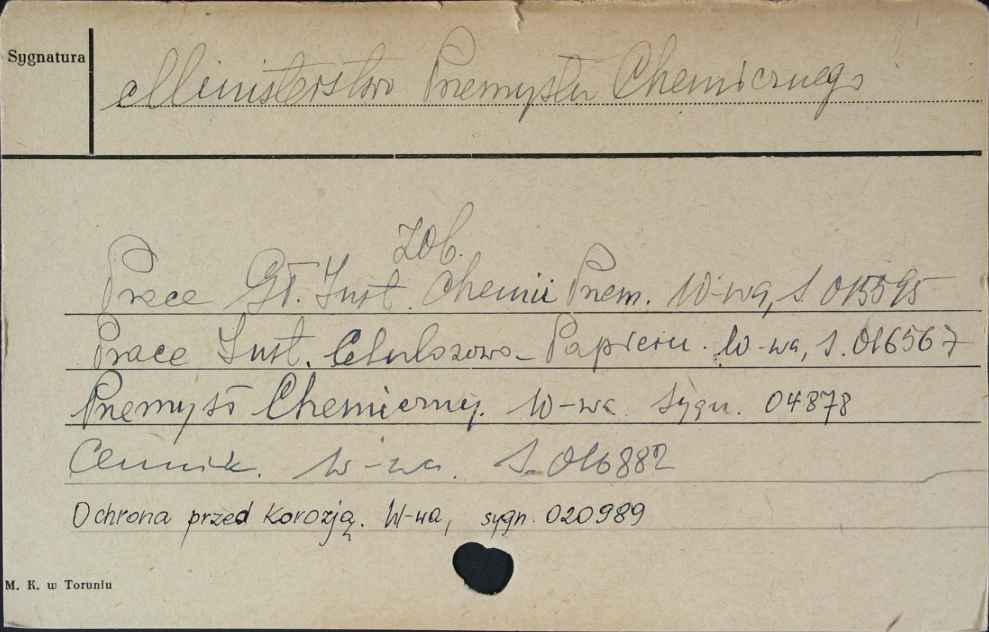 Sygnatura
Ministerstwo Przemysłu Chemicznego
zob.
Prace Gł. Inst. Chemii Przem. W-wa, S. 015595
Prace Inst. Celulozowo-Papiern. W-wa, S. 016567
Przemysł Chemiczny. W-wa. Sygn. 04878
Cennik. W-wa. S. 016882
Ochrona przed Korozją. W-wa, sygn. 020989
M. K. w Toruniu